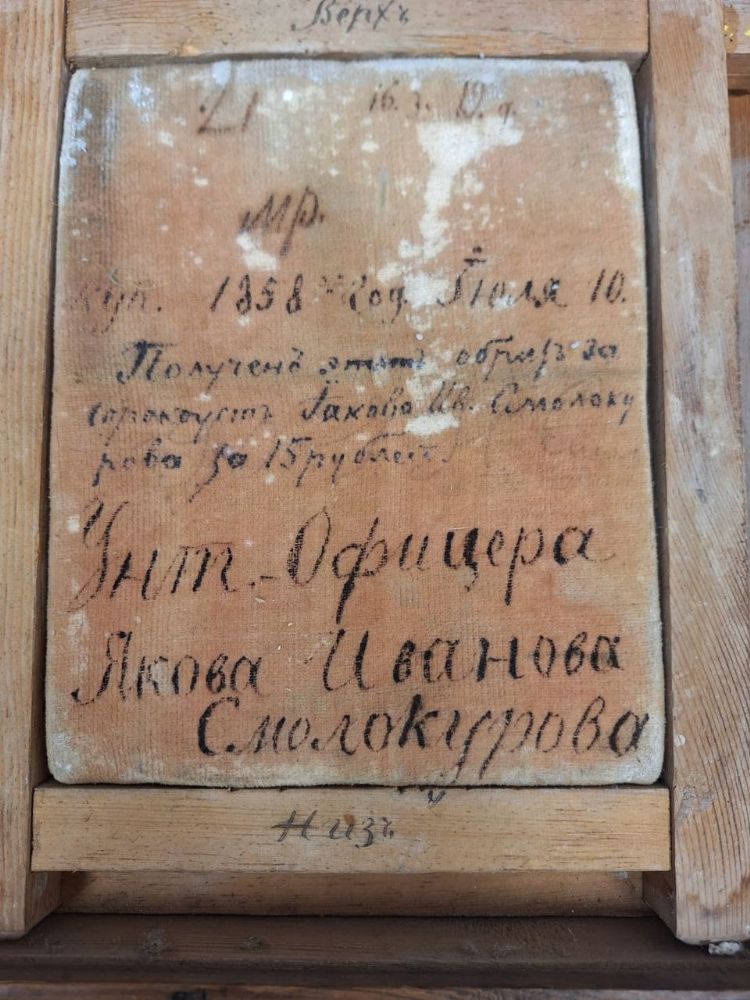 Верхъ
21 16. з. 12. д.
мр.
Куп. 1858 год. Іюля 10.
Полученъ этотъ образъ за
сорокоустъ Іакова Ив. Смолоку
рова за 15 рублей.
Унт.-Офицера
Якова Иванова
Смолокурова
Низъ